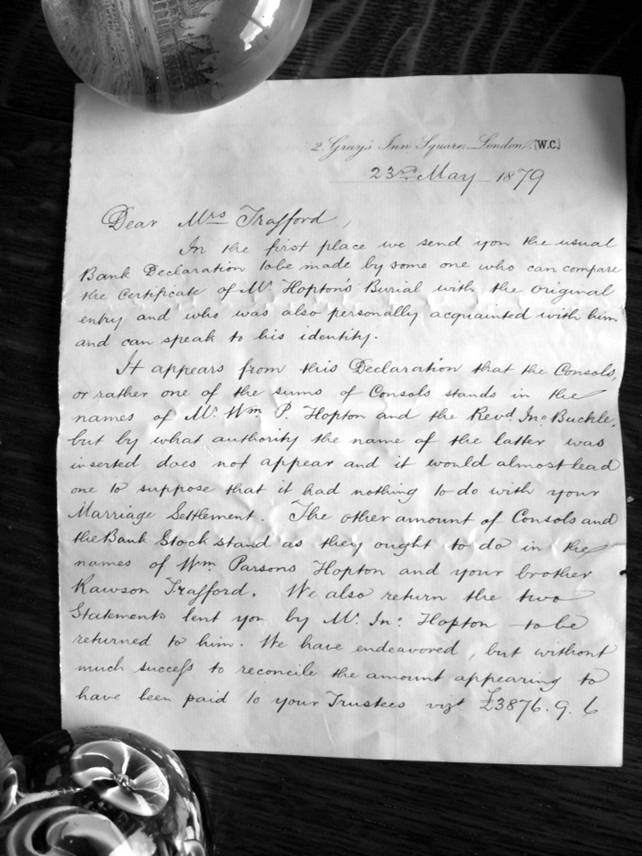 2 Gray's Inn Square, London, W.C.
23rd May 1879
Dear Mrs Trafford,
In the first place we send you the usual
Bank Declaration to be made by some one who can compare
the Certificate of Mr. Hopton's Burial with the original
entry and who was also personally acquainted with him
and can speak to his identity.
It appears from this Declaration that the Consols,
or rather one of the sums of Consols stands in the
names of Mr. Wm P. Hopton and the Revd. Jno Buckle,
but by what authority the name of the latter was
inserted does not appear and it would almost lead
one to suppose that it had nothing to do with your
Marriage Settlement. The other amount of Consols and
the Bank Stock stand as they ought to do in the
names of Wm. Parsons Hopton and your brother
Rawson Trafford. We also return the two
Statements lent you by Mr. Jno. Hopton to be
returned to him. We have endeavored, but without
much success to reconcile the amount appearing to
have been paid to your Trustees vizt £3876.9.6